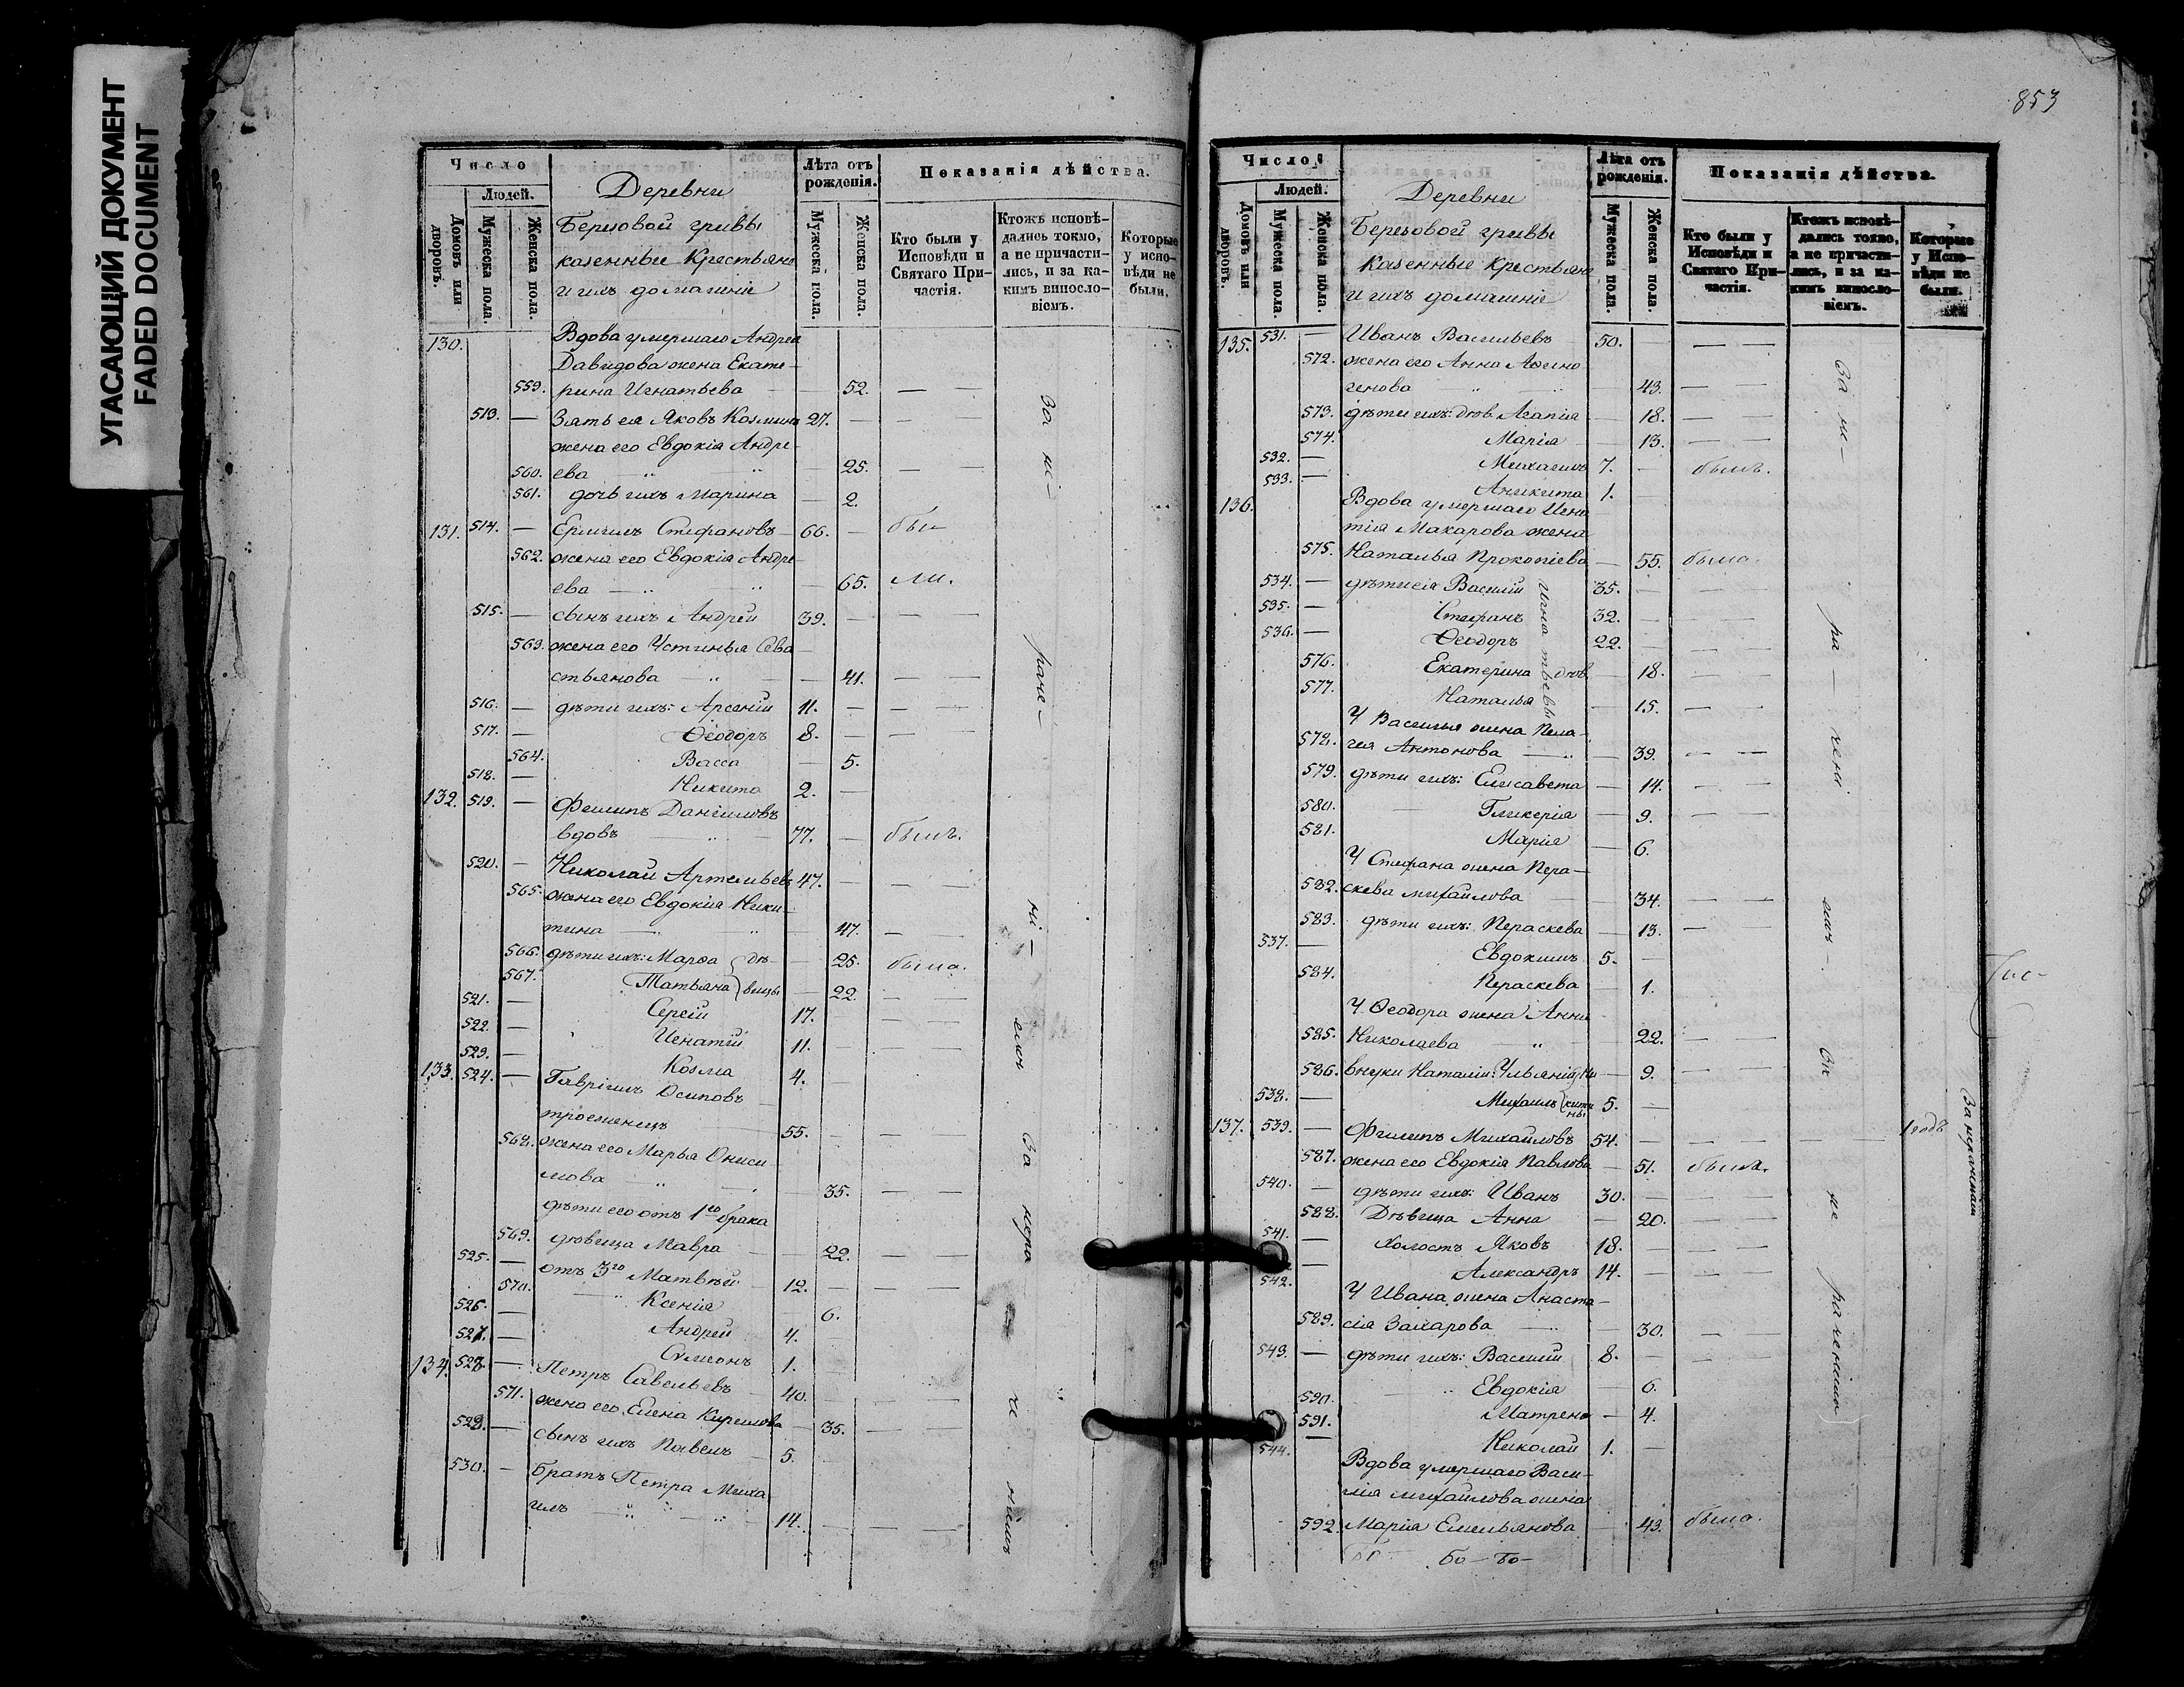 УГАСАЮЩИЙ ДОКУМЕНТ
FADED DOCUMENT
Число
Людей.
Домовъ или дворовъ.
Мужеска пола.
Женска пола.
Деревни
Березовой гривы
казенные Крестьяне
и ихъ домашніе
Лѣта отъ рожденія.
Мужеска пола.
Женска пола.
Показанія дѣйства.
Кто были у Исповѣди и Святаго Причастія.
Ктожъ исповѣдались токмо, а не причастились, и за какимъ винословіемъ.
Которые у исповѣди не были.
130. Вдова умершаго Андрея
Давидова жена Екате-
559. рина Игнатьева — 52. — —
513. — Зять ея Яковъ Козмин 27. — —
жена его Евдокія Андре-
560. ева — 25. — —
561. дочь ихъ Марина — 2.
131. 514. — Ермилъ Стефановъ — 66. — бы-
562. жена его Евдокія Андре-
ева — 65. ли.
515. — сынъ ихъ Андрей 39. — — —
563. жена его Устинья Сева-
стьянова — 41. — —
516. — дѣти ихъ: Арсеній 11. — — —
517. — Ѳеодоръ 8. — — —
564. Васса — 5.
518. — Никита 2. —
132. 519. — Филипъ Даніиловъ
вдовъ — 77. — былъ.
520. — Николай Артемьевъ 47. — —
565. жена его Евдокія Ники-
тина — 47. — —
566. дѣти ихъ: Марѳа } дѣ- — 25. была.
567. Татьяна } вицы — 22. — —
521. — Сергій 17. — —
522. — Игнатій 11. — —
523. — Козма 4.
133. 524. — Гавріилъ Осиповъ —
троеженецъ 55. — — —
568. жена его Марья Ониси-
мова — 35. — —
дѣти его отъ 1го брака
569. дѣвица Мавра — 22. — —
525. — отъ 3го Матвѣй 12. — — —
570. Ксенія 6.
526. — Андрей 4. —
527. — Симеонъ 1.
134. 528. — Петръ Савельевъ — 40. — —
571. жена его Елена Кирилова — 35. — —
529. — сынъ ихъ Павелъ — 5.
530. — братъ Петра Миха-
илъ — 14. — — —
853
Число
Людей.
Домовъ или дворовъ.
Мужеска пола.
Женска пола.
Деревни
Березовой гривы
казенные Крестьяне
и ихъ домашніе
Лѣта отъ рожденія.
Мужеска пола.
Женска пола.
Показанія дѣйства.
Кто были у Исповѣди и Святаго Причастія.
Ктожъ исповѣдались токмо, а не причастились, и за какимъ винословіемъ.
Которые у Исповѣди не были.
135. 531. — Иванъ Васильевъ 50. — — —
572. жена его Анна Аѳино-
генова — 43. — —
573. дѣти ихъ: дѣв. Агапія — 18. —
574. Марія — 13. — —
532. — Михаилъ 7. — былъ.
533. — Аникита 1. —
136. Вдова умершаго Игна-
тія Макарова жена
575. Наталья Прокопіева — 55. была.
534. — дѣти ея Василій 35. — — —
535. — Стефанъ 32. — — —
536. — Ѳеодоръ 22. — — —
576. Екатерина дѣв. — 18. — —
577. Наталья — 15. — —
Игнатьевы
У Василья жена Пела-
578. гея Антонова — 39. — —
579. дѣти ихъ: Елисавета — 14. — —
580. Гликерія — 9. — —
581. Марія — 6.
У Стефана жена Пера-
582. скева Михайлова — 34. — —
583. дѣти ихъ: Пераскева — 13. — —
537. — Евдокимъ 5. —
584. Пераскева — 1.
У Ѳеодора жена Анна
585. Николаева — 22. — —
586. внуки Наталіи: Ульянія } Ни- — 9. — —
538. — Михаилъ } кити-ны 5. —
137. 539. — Филипъ Михайловъ 54. — — — — 1 годъ
587. жена его Евдокія Павлова — 51. была.
540. — дѣти ихъ: Иванъ 30. —
588. Дѣвица Анна — 20. — —
541. — холостъ Яковъ 18. — — —
542. — Александръ 14. — — —
У Ивана жена Анаста-
589. сія Захарова — 30. — —
543. — дѣти ихъ: Василій 8. — — —
590. Евдокія — 6.
591. Матрена — 4.
544. — Николай 1. —
Вдова умершаго Васи-
лія Михайлова жена
592. Марія Емельянова — 43. была.